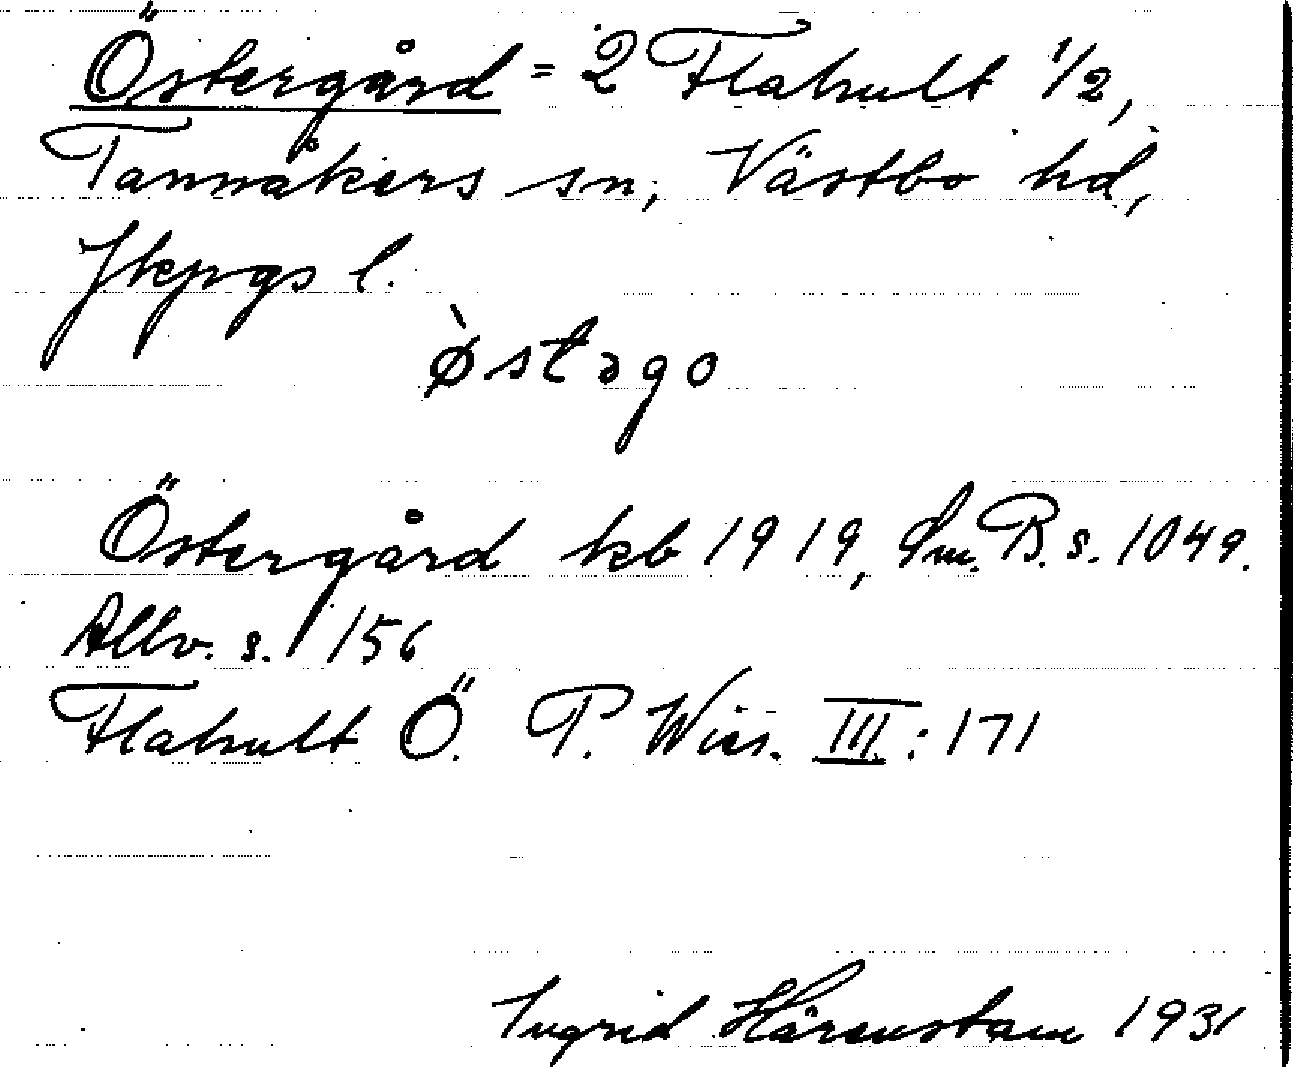 Östergård = 2 Flahult 1/2,
Tannåkers sn, Västbo hd,
Jkpgs l.
ø̀stəgo
Östergård kb 1919, Sm. B. s. 1049.
Allv. s. 156
Flahult Ö. P. Wies. III.: 171
Ingrid Härenstam 1931